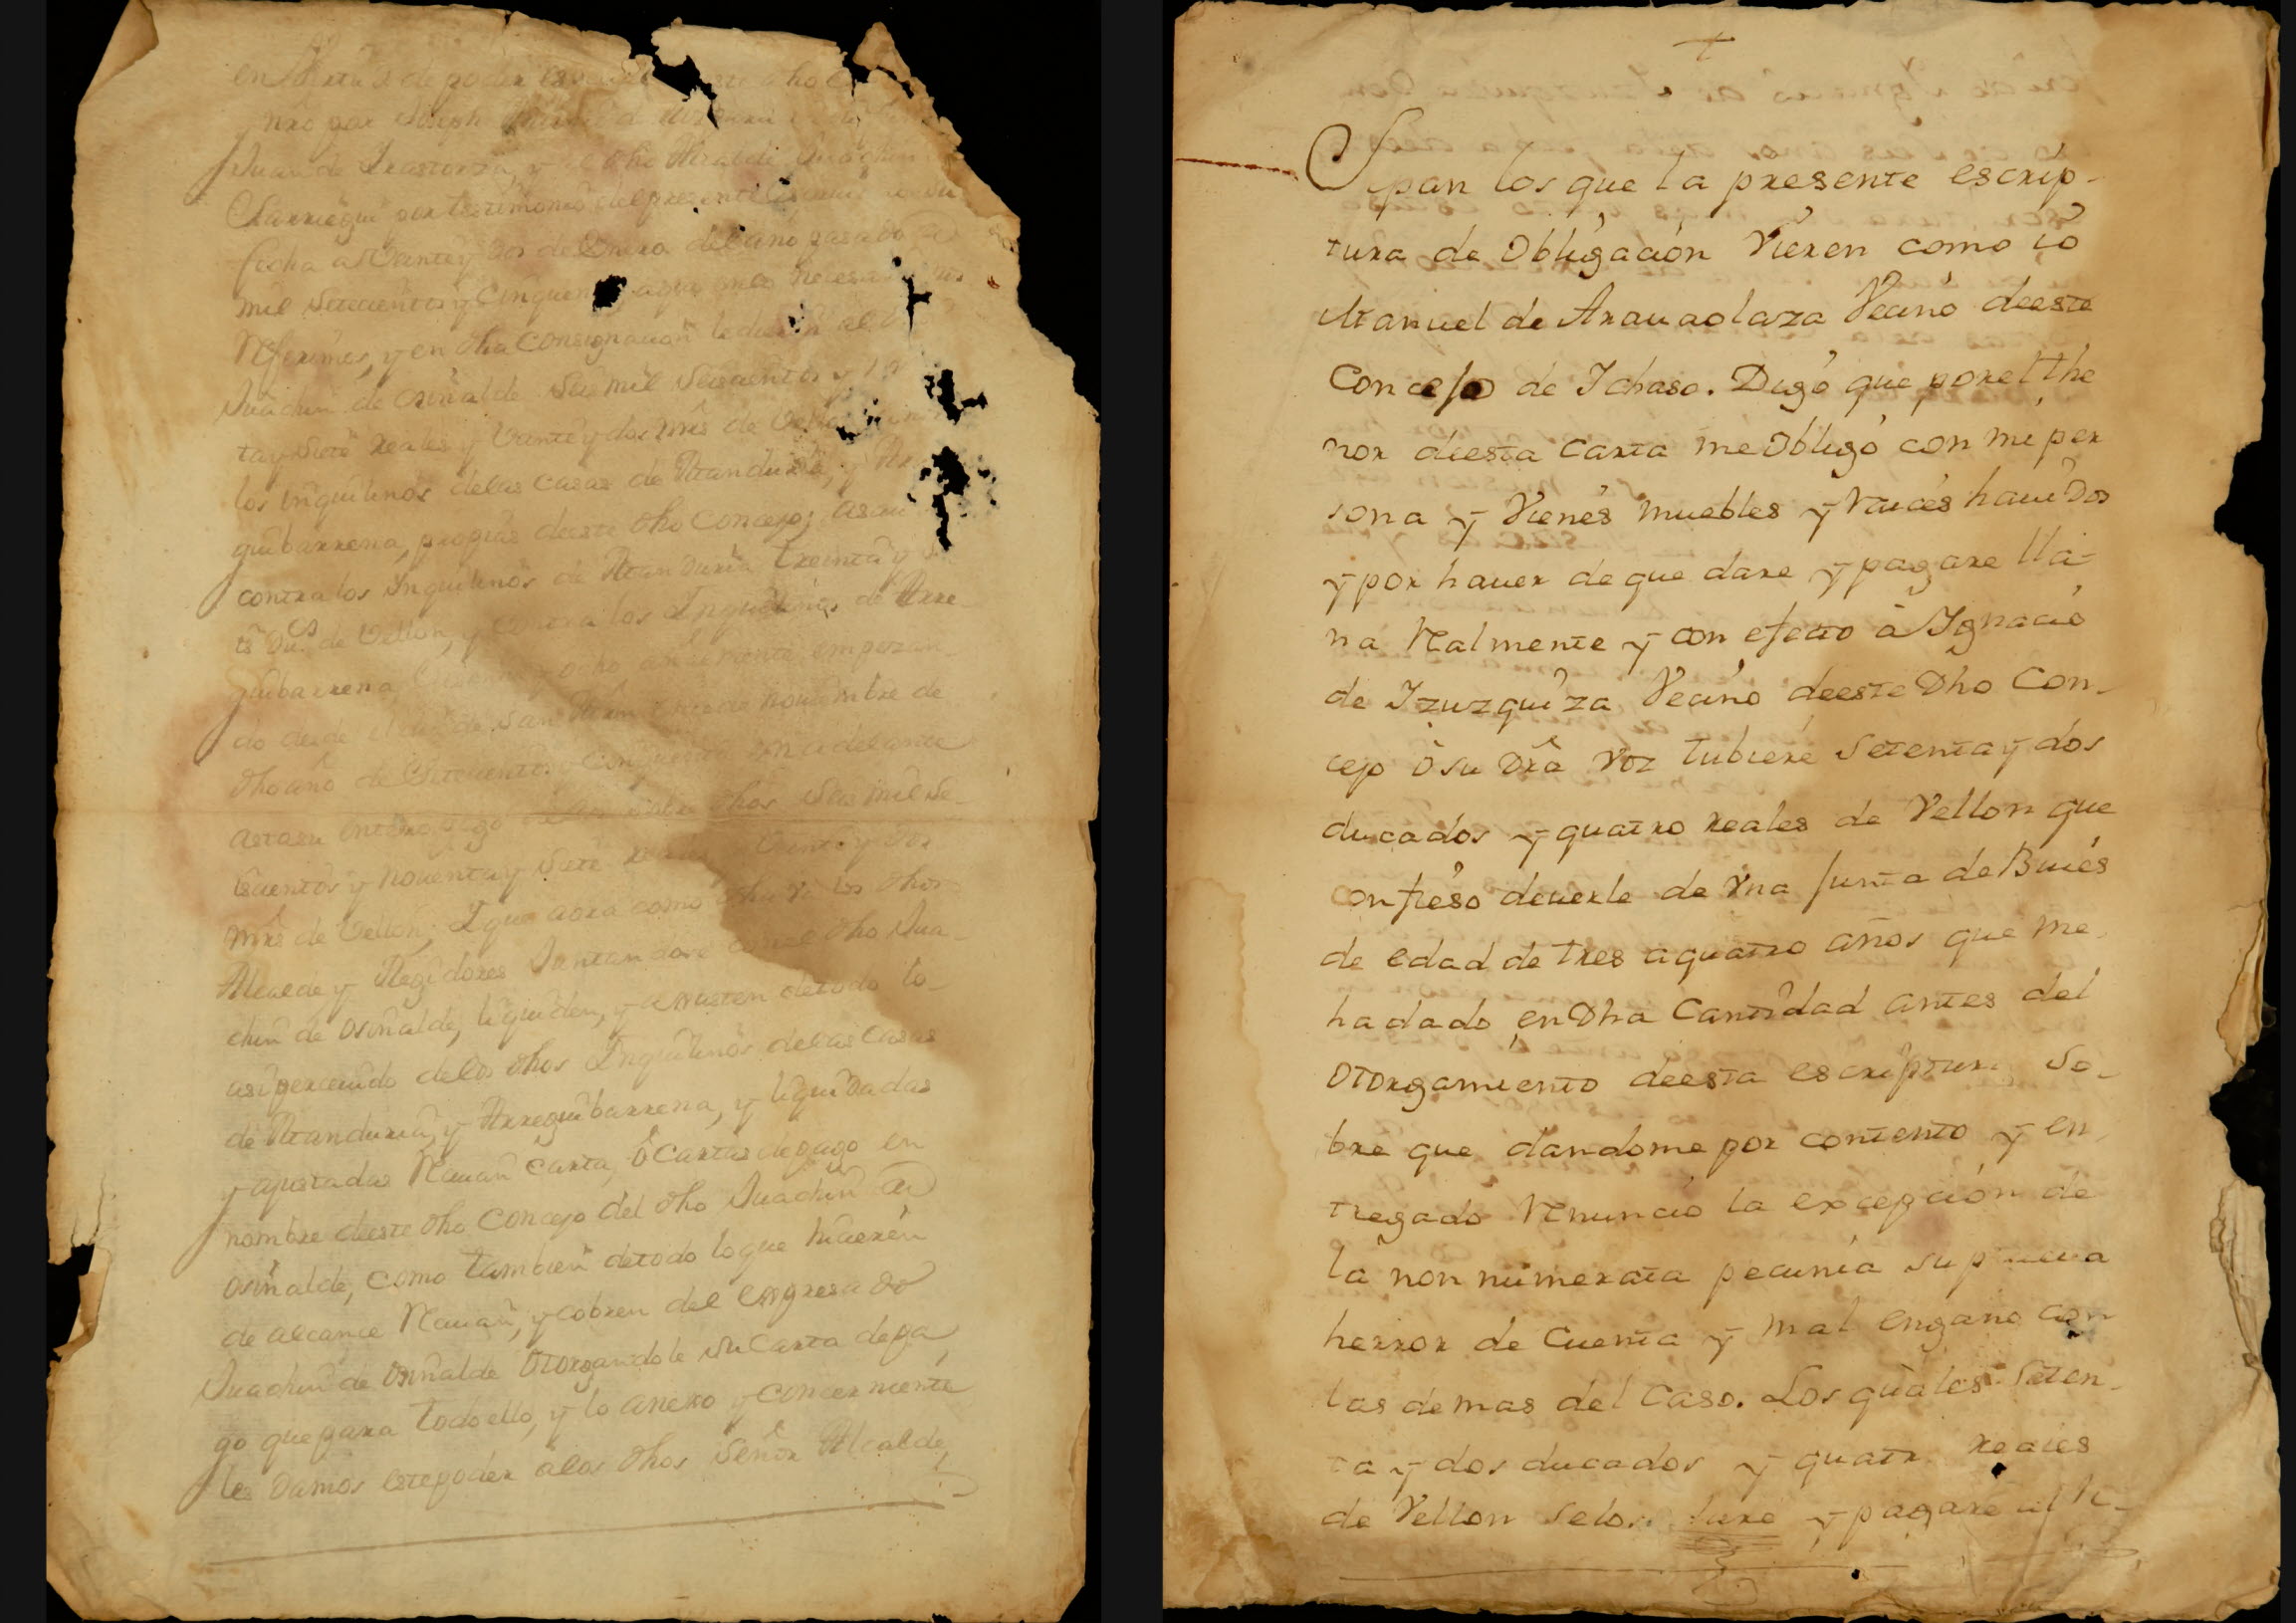 en Virtud de poder
y nro por Joseph
Juan de Irastorza, y el dho Alcalde Juachin
Charriegui por testimonio del presente
fecha a Veinte y dos de Enero del año pasado de
mil Setecientos y Cinquenta
Referimos, y en dha Consignacion
Juachin de osinalde Seis mil Seiscientos y
ta y Siete Reales y Veinte y dos mrs de Vellon
los Inquilinos delas casas de Manduria, y
guibarrena, propias deeste dho Concejo; asaver
contra los Inquilinos de Manduria treinta y
Du.s de Vellon, y contra los Inquilinos de Arre-
guibarrena y ocho anualmente empezan-
do desde el dia de San Mrn de noviembre de
dho año de Setecientos y Cinquenta en adelante
astasu entero pago dhos Seis mil Se-
iscientos y noventa y Siete Reales y Veinte y dos
mrs de Vellon; I que aora como dho es los dhos
Alcalde y Regidores Juntandose con el dho Jua-
chin de osinalde, liquiden, y ajusten detodo lo
asi percevido delos dhos Inquilinos delas Casas
de Manduria, y Arreguibarrena, y liquidadas
y ajustadas Reciuan Carta, ò Cartas depago en
nombre deeste dho Concejo del dho Juachin de
osinalde, como tambien detodo loque hicieren
de alcance Reciuan, y cobren del expresado
Juachin de Osinalde otorgandole su Carta depa
go que para todo ello, y lo anexo y concerniente
les damos este poder alos dhos Señor Alcalde,
†
Sepan los que la presente escrip-
tura de Obligación Vieren como io
Manuel de Arauaolaza Vecino deeste
Concejo de Ichaso. Digo que por el the
nor deesta Carta me Obligo con mi per
sona y Vienes muebles y Raices hauidos
y por hauer de que dare y pagare lla-
na Realmente y con efecto à Ignacio
de Izuzquiza Vecino deeste Dho Con-
cejo ò su Dra Voz tubiere Setenta y dos
ducados y quatro reales de Vellon que
confieso deuerle de Vna Junta de Buies
de edad de tres aquatro años que me
ha dado en Dha Cantidad antes del
otorgamiento deesta escriptura So-
bre que dandome por contento y en
tregado Renuncio la excepcion de
la non numerata pecunia su prueua
herror de Cuenta y mal engano con
las demas del Caso. Los quales Seten-
ta y dos ducados y quatro reales
de Vellon selos dare y pagare